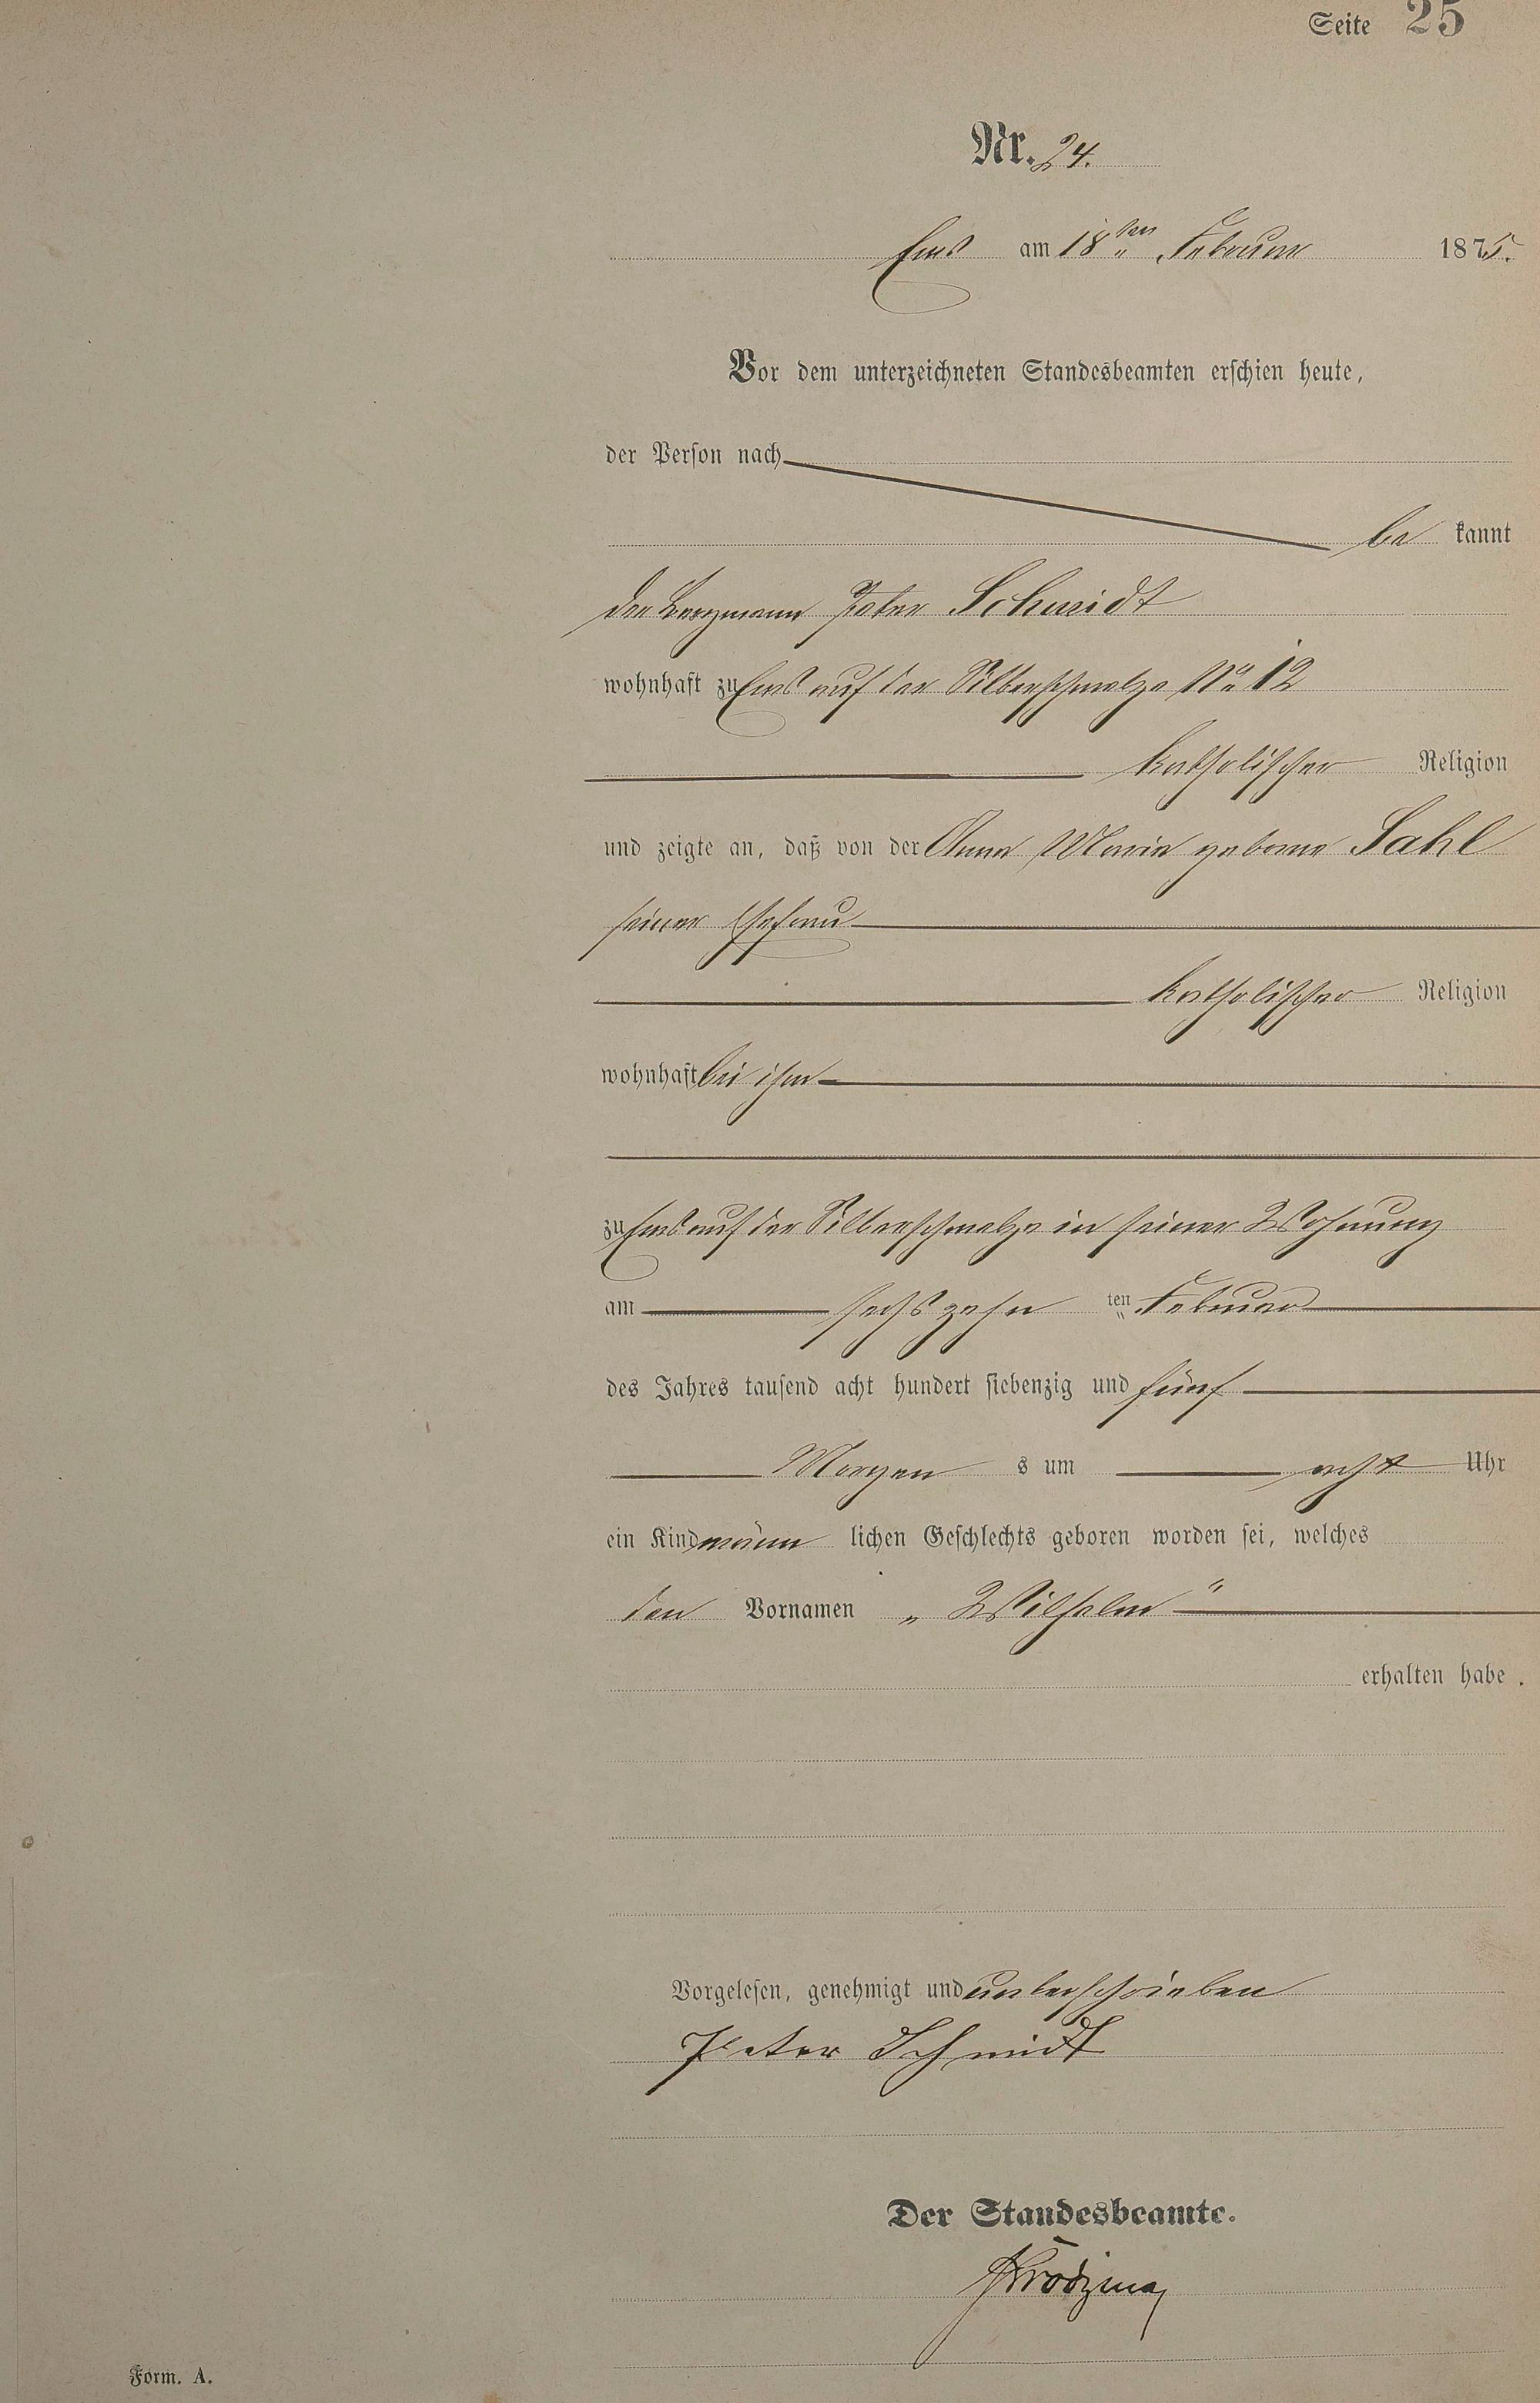 Seite 25
Nr. 24.
Ems am 18ten Februar 1875.
Vor dem unterzeichneten Standesbeamten erschien heute,
der Person nach
be kannt
der Bergmann Peter Schmidt
wohnhaft zu Ems auf der Silberschmelze No 12
katholischer Religion
und zeigte an, daß von der Anna Maria geborne Sahl
seiner Ehefrau
katholischer Religion
wohnhaft bei ihm
zu Ems auf der Silberschmelze in seiner Wohnung
am sechszehn ten Februar
des Jahres tausend acht hundert siebenzig und fünf
Morgen s um acht Uhr
ein Kind männ lichen Geschlechts geboren worden sei, welches
den Vornamen „Wilhelm“
erhalten habe.
Vorgelesen, genehmigt und unterschrieben
Peter Schmidt
Der Standesbeamte.
Form. A.